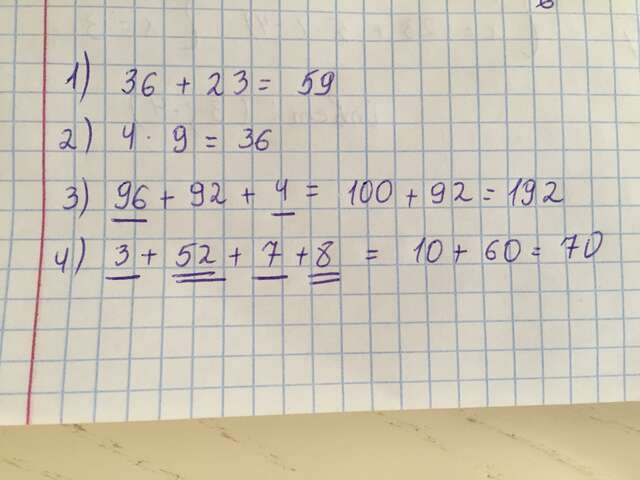 1) 36 + 23 = 59
2) 4 · 9 = 36
3) 96 + 92 + 4 = 100 + 92 = 192
4) 3 + 52 + 7 + 8 = 10 + 60 = 70